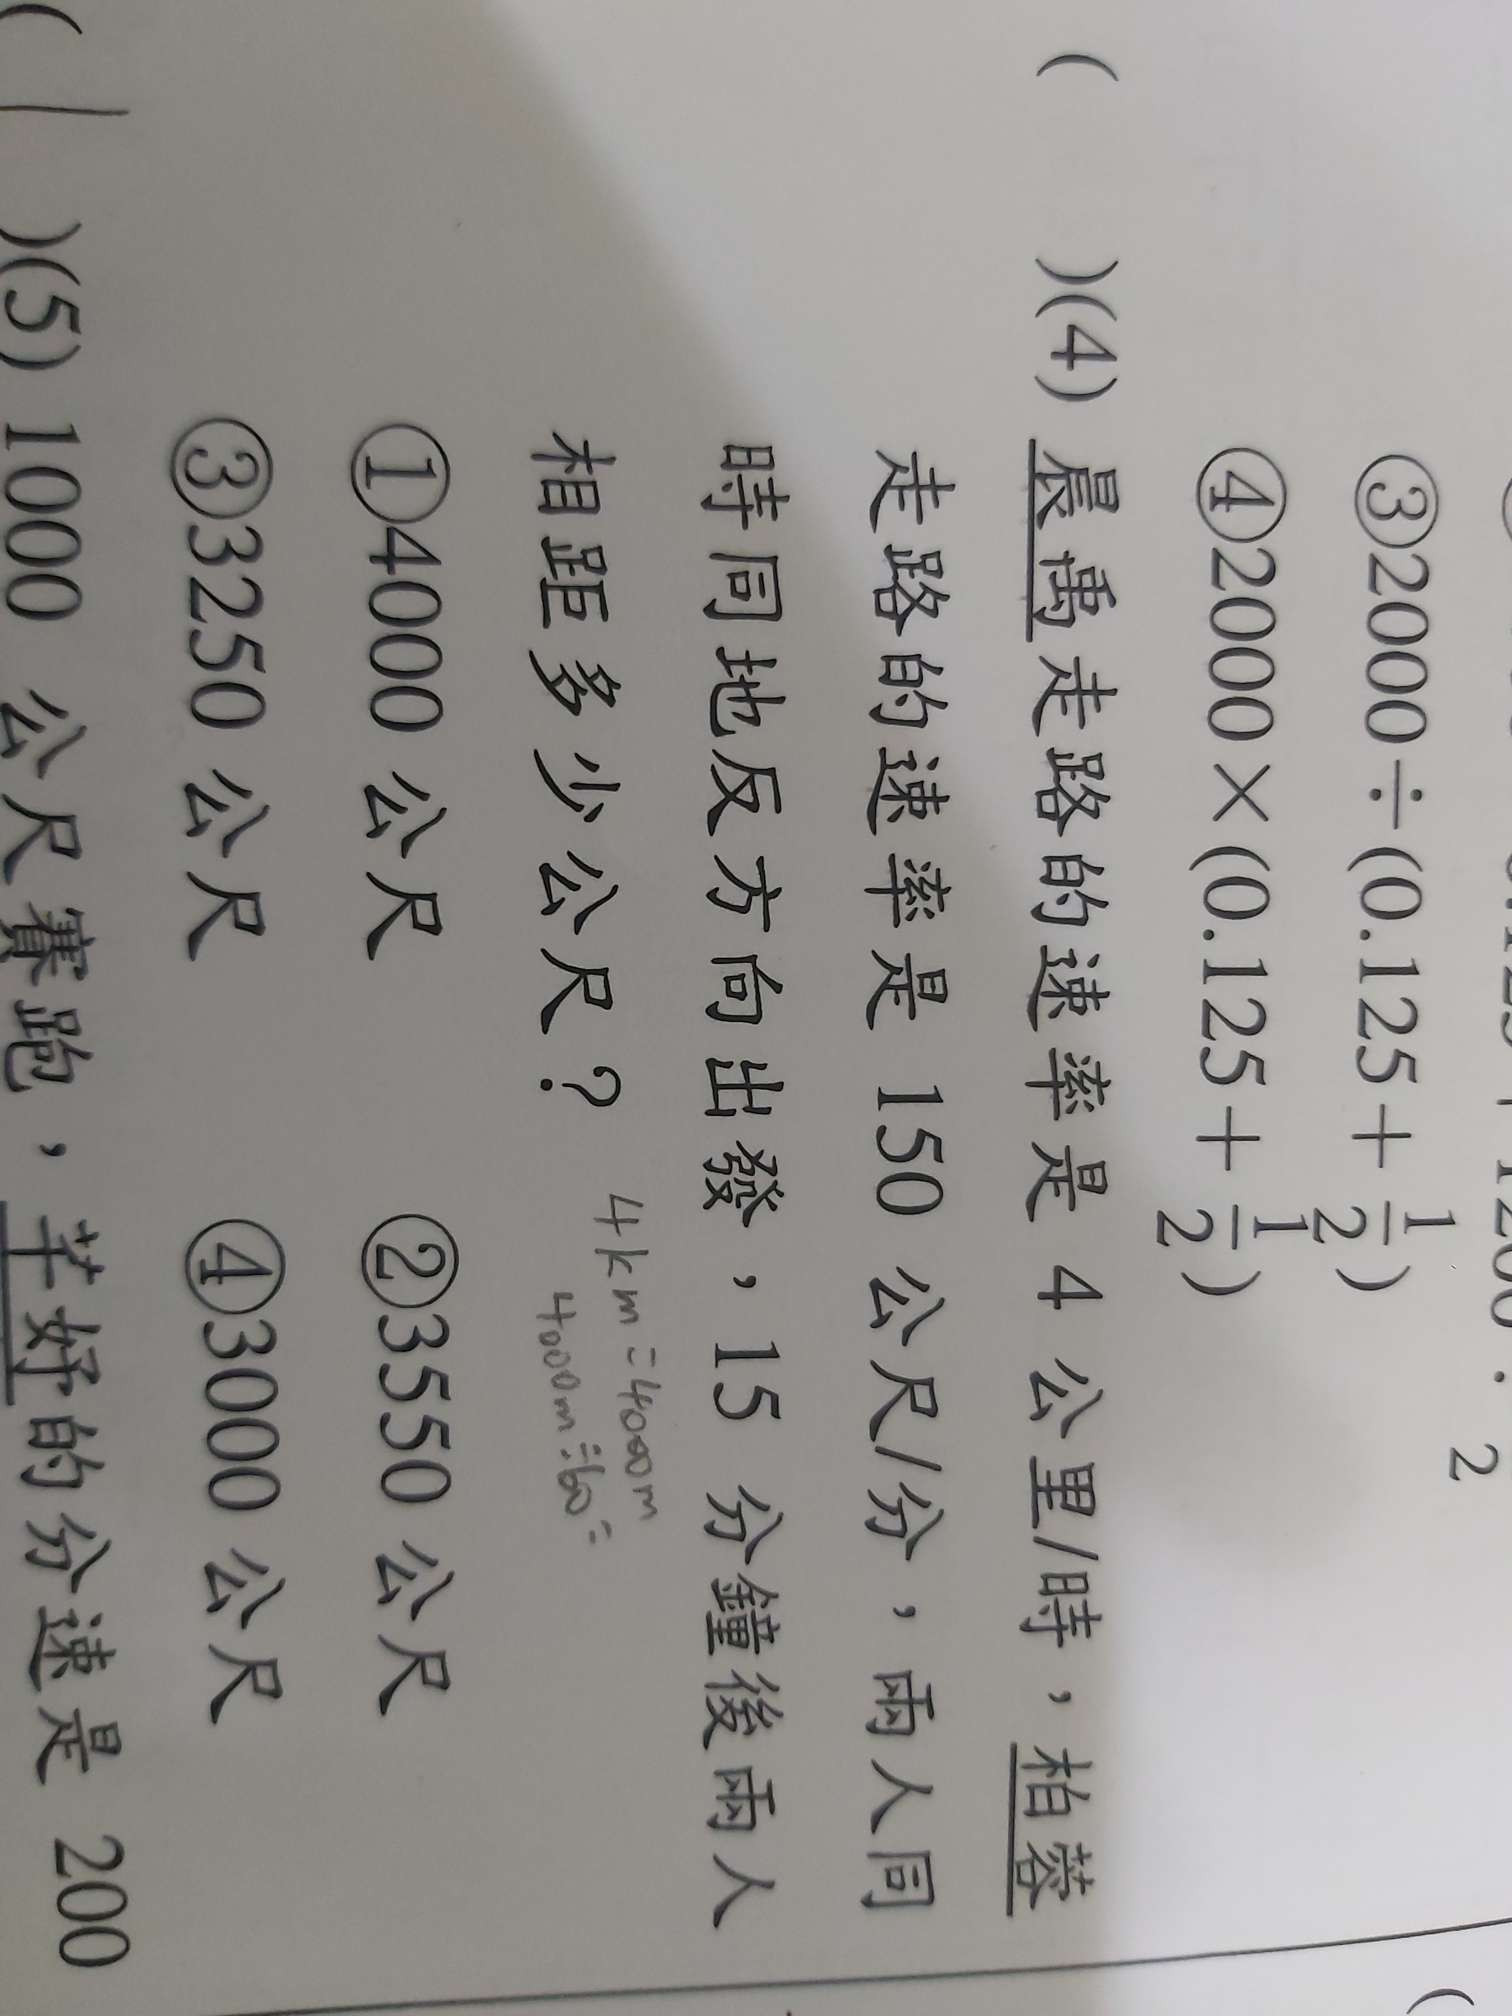 ③2000÷(0.125+1/2)
④2000×(0.125+1/2)
( )(4) 晨禹走路的速率是 4 公里/時，柏蓉
走路的速率是 150 公尺/分，兩人同
時同地反方向出發，15 分鐘後兩人
相距多少公尺？
4km=4000m
4000m÷60=
①4000 公尺 ②3550 公尺
③3250 公尺 ④3000 公尺
( 1 )(5) 1000 公尺賽跑，芊妤的分速是 200